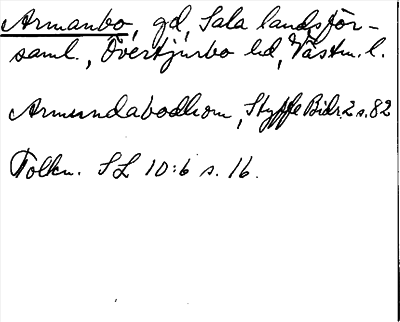 Armanbo, gd, Sala landsför-
saml., Övertjurbo hd, Västm. l.
Armundabodhom, Styffe Bidr. 2 s. 82
Tolkn. SL 10:6 s. 16.